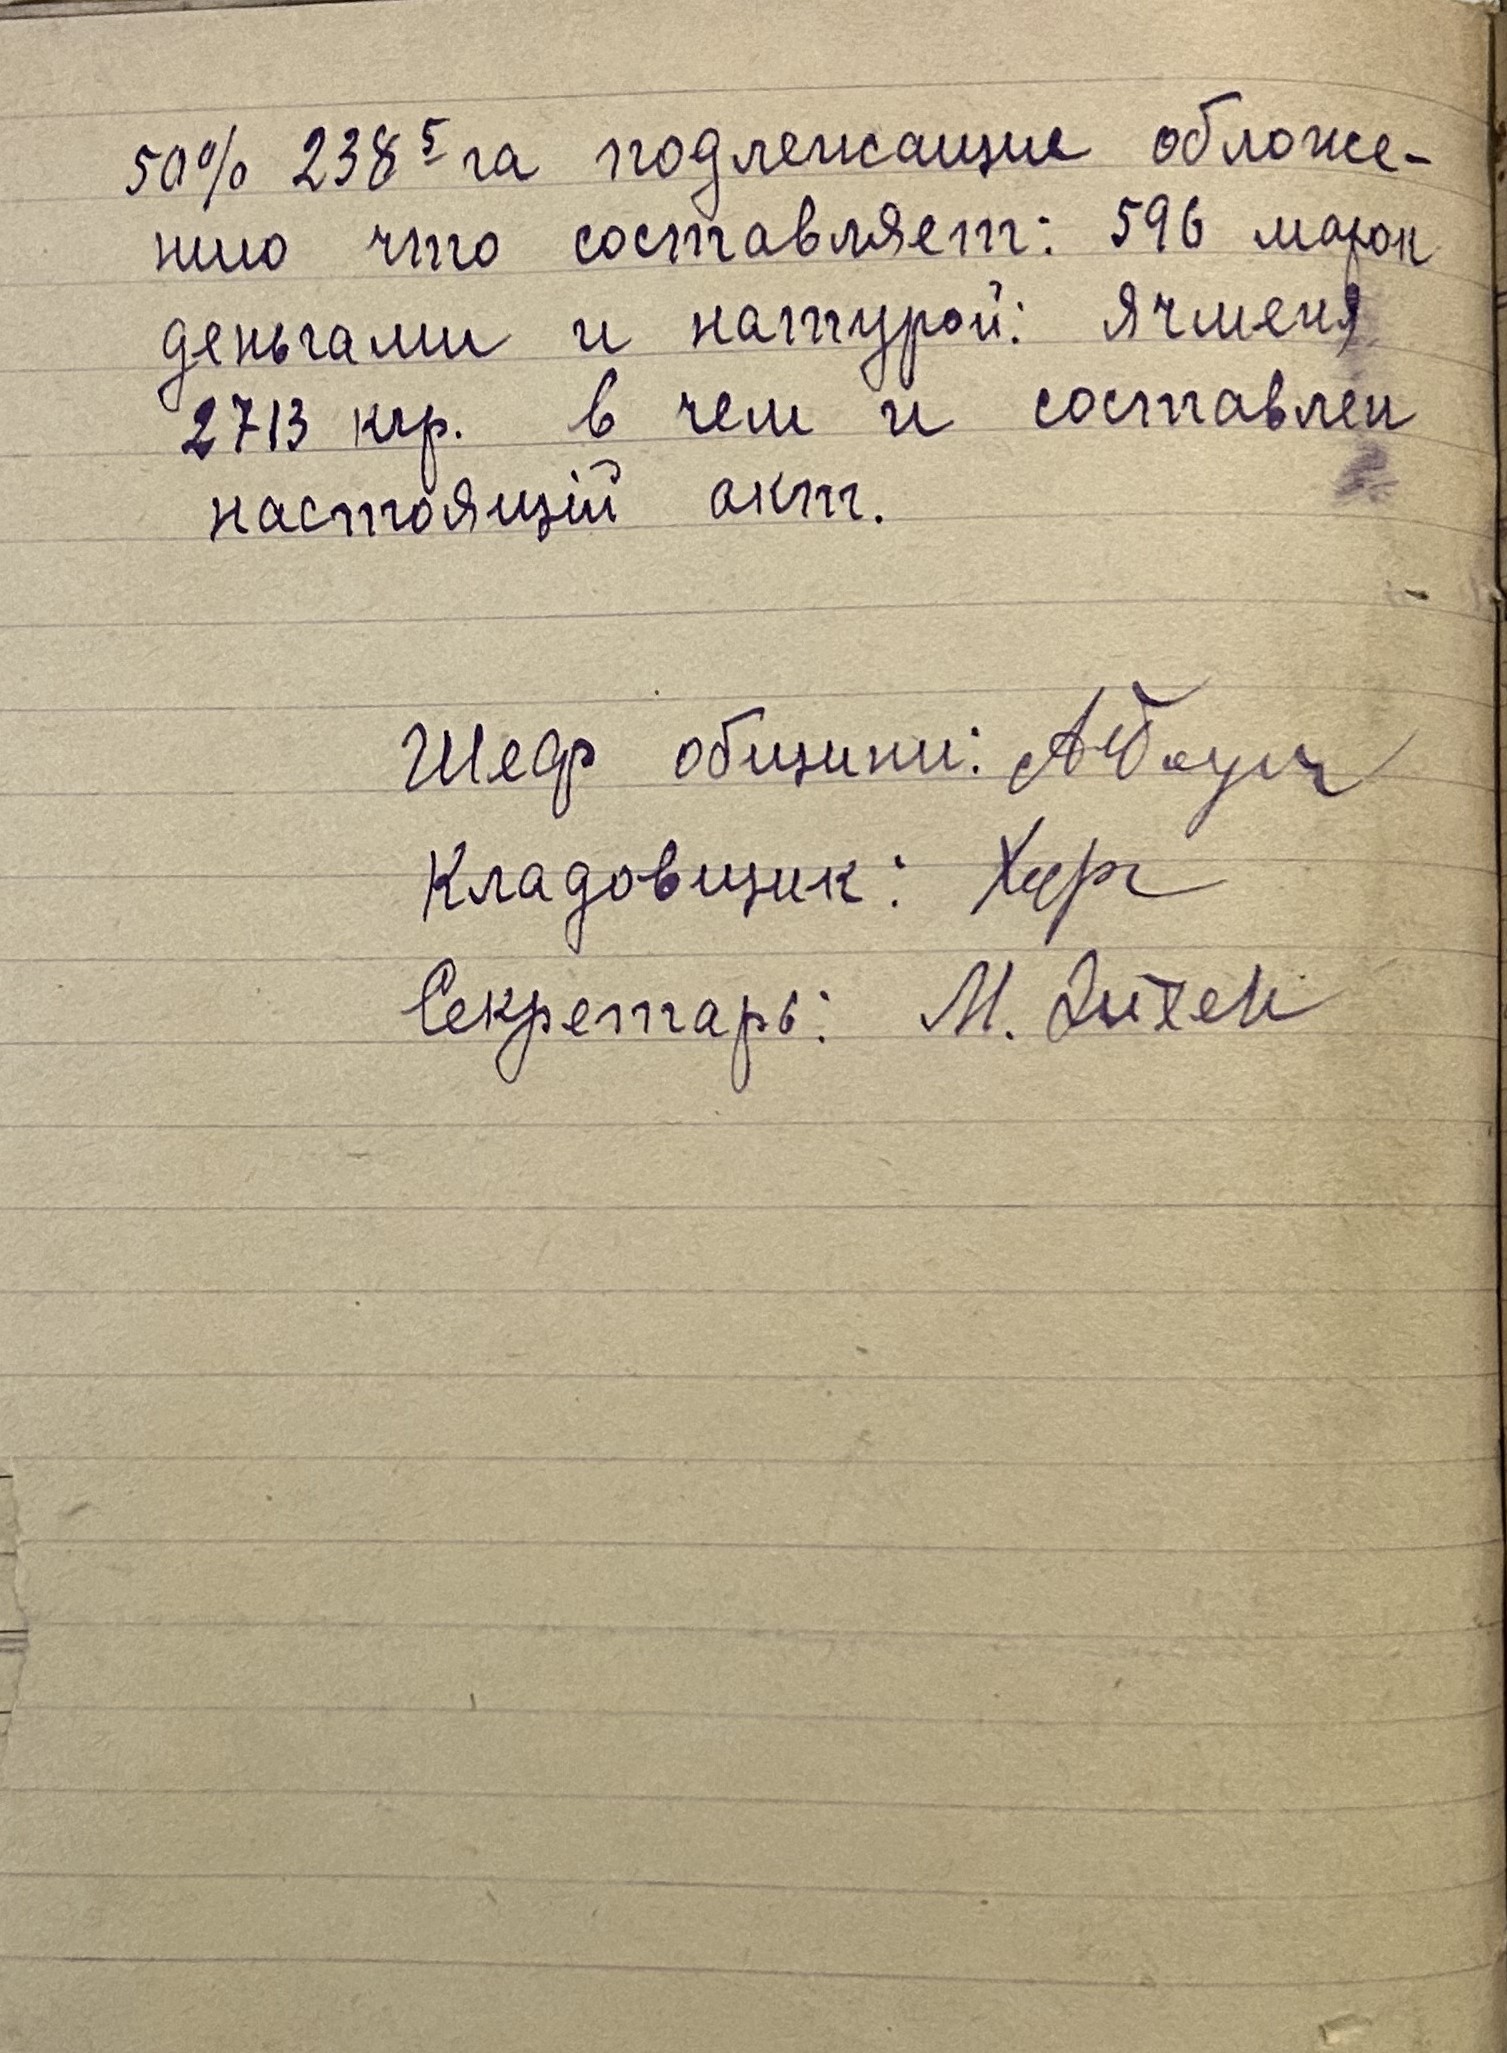 50% 238⁵ га подлежащие обложе-
нию что составляет: 596 марок
деньгами и натурой: ячменя
2713 кгр. в чем и составлен
настоящій акт.
Шеф общини:
Кладовщик:
Секретарь: М.